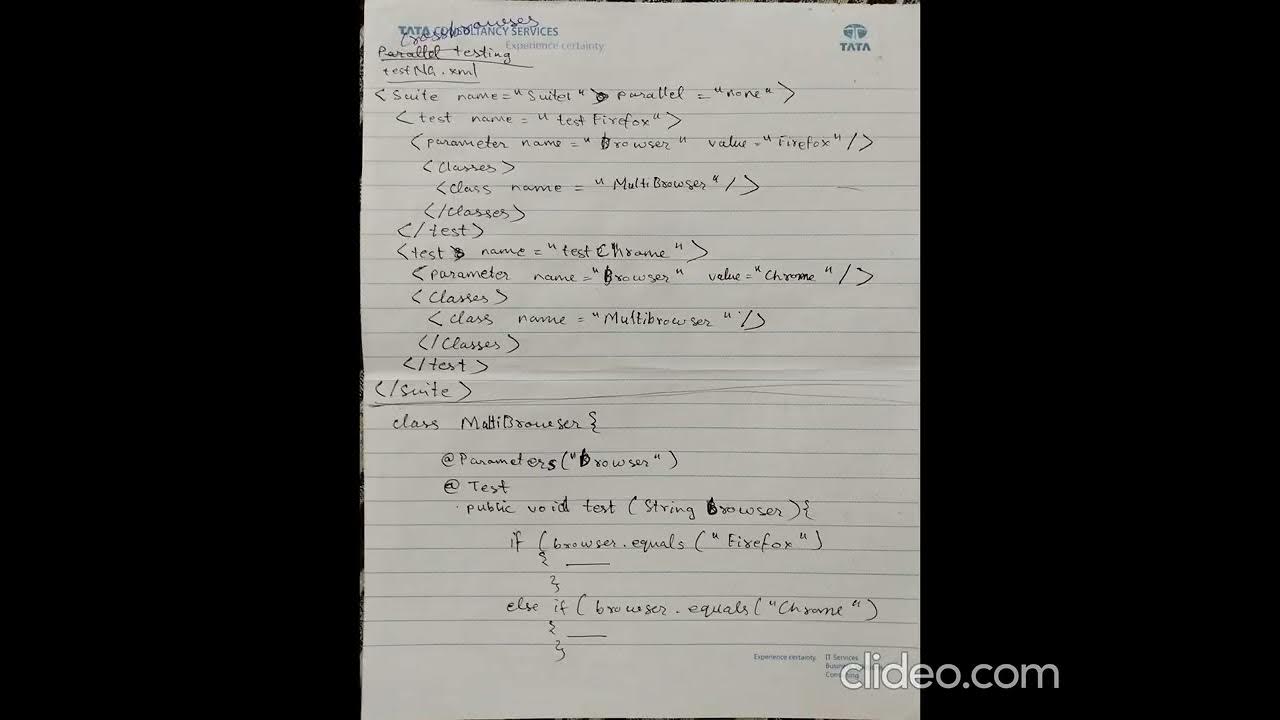 Crossbrowser
TATA CONSULTANCY SERVICES
Experience certainty
TATA
Parallel testing
testNG.xml
<Suite name="Suite1" parallel="none">
<test name="testFirefox">
<parameter name="Browser" value="Firefox"/>
<classes>
<class name="MultiBrowser"/>
</classes>
</test>
<test name="testChrome">
<parameter name="Browser" value="Chrome"/>
<classes>
<class name="Multibrowser"/>
</classes>
</test>
</suite>
class MultiBrowser{
@Parameters("Browser")
@Test
public void test(String Browser){
if (browser.equals("Firefox")
{ __
}
else if (browser.equals("Chrome")
{ __
}
Experience certainty. IT Services
Business
Consulting
clideo.com